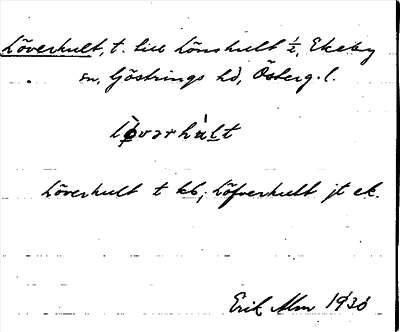 Löverhult, t. till Lönshult ½, Ekeby
sn, Göstrings hd, Österg. l.
lø̀vərhùlt
Löverhult t kb; Löfverhult jt ek.
Erik Alm 1930